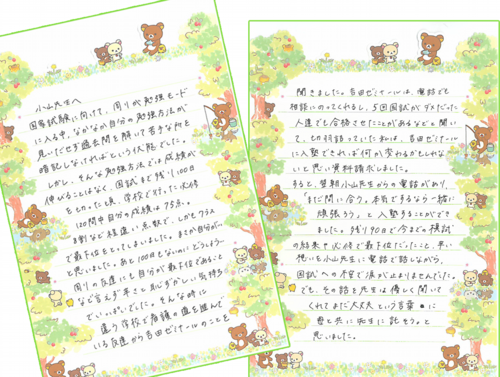 小山先生へ
国家試験に向けて、周りが勉強モード
に入る中、なかなか自分の勉強方法が
見いだせず過去問を解いて苦手な所を
暗記しなければという状態でした。
しかし、そんな勉強方法では成績が
伸びることはなく、国試まで残り100日
をきった頃、学校で行った模試
120問中自分の成績は75点。
8割など程遠い点数で、しかもクラス
で最下位をとってしまいました。まさか自分が…
と思いました。あと100日もないのにどうしよう…
周りの友達にも自分が最下位であること
など言えず、早くと恥ずかしい気持ち
でいっぱいでした。そんな時に
違う学校で看護の道を進んで
いる友達から吉田ゼミナールのことを
聞きました。吉田ゼミナールは、電話でも
相談にのってくれるし、5回国試がダメだった
人達でも合格させたことがあるなどと聞い
て、切羽詰っていた私は、吉田ゼミナール
に入塾できれば何か変わるかもしれな
いと思い資料請求しました。
すると、翌朝小山先生からの電話があり、
「まだ間に合う。本気でするなら一緒に
頑張ろう」と入塾することができ
ました。残り90日で今までの模試
の結果や必修で最下位だったこと、辛い
想いを小山先生に電話で話しながら、
国試への不安で涙が止まりませんでした。
でも、その話を先生は優しく聞いて
くれてまだ大丈夫という言葉に
費と共に先生に託そうと
思いました。